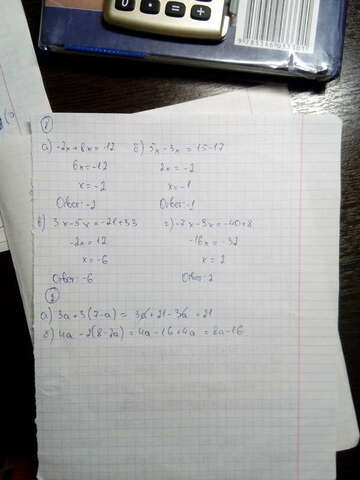 9785346033301
1
а) -2x+8x=-12 б) 5x-3x=15-17
6x=-12 2x=-2
x=-2 x=-1
Ответ: -2 Ответ: -1
в) 3x-5x=-21+33 г) -7x-9x=-40+8
-2x=12 -16x=-32
x=-6 x=2
Ответ: -6 Ответ: 2
2
а) 3a+3(7-a)= 3a+21-3a =21
б) 4a-2(8-2a)=4a-16+4a=8a-16